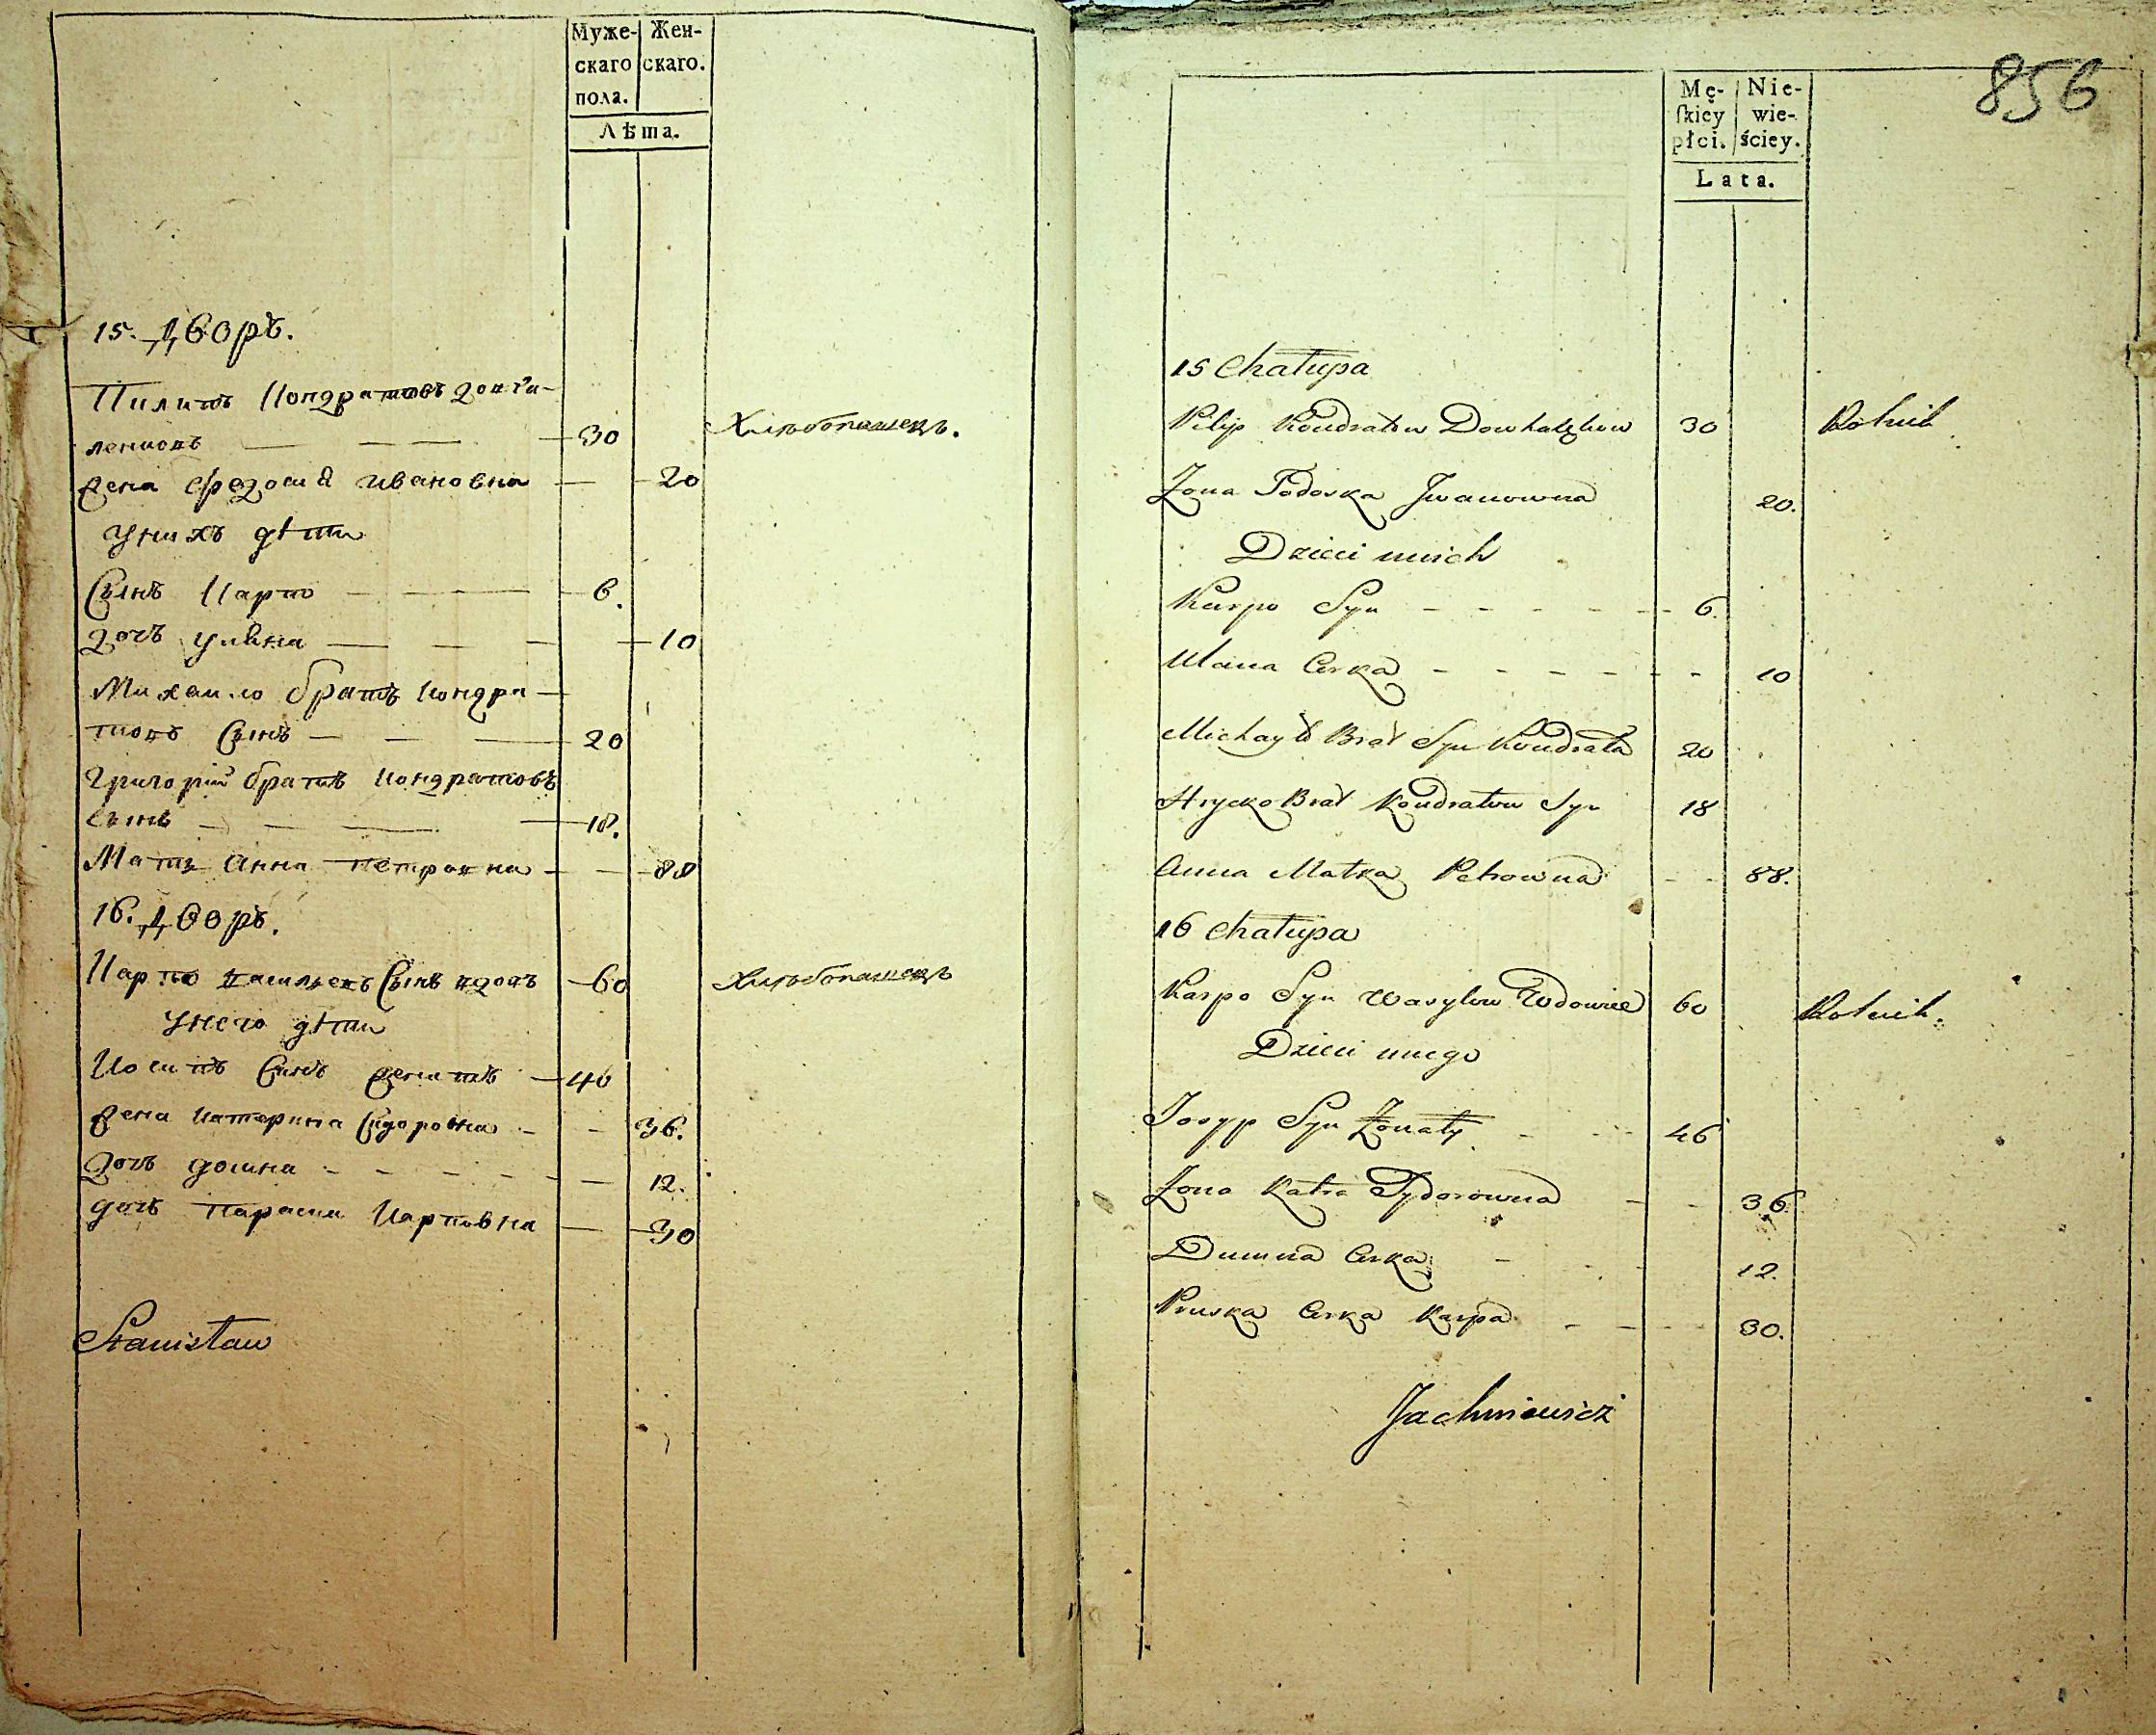 Муже- Жен-
скаго скаго.
пола.
Лѣта.
15. Дворъ.
Пилипъ Кондратовъ Довга-
ленковъ 30 Хлѣбопашецъ.
жена Феодосия Ивановна 20
У нихъ дѣти
Сынъ Карпо 6.
дочъ Уляна 10
Михаило братъ Кондра-
товъ Сынъ 20
Григорій братъ Кондратовъ
сынъ 18.
Мать Анна Петровна 88
16. Дворъ.
Карпо Васильевъ Сынъ вдовъ 60 Хлѣбопашецъ
У него дѣти
Иосипъ Сынъ женатъ 46
жена Катерина Сидоровна 36.
дочъ Домна 12.
дочъ Параска Карповна 30
Stanisław
856
Mę- Nie-
ſkiey wie-
płci. ściey.
Lata.
15 Chałupa
Pilip Kondratow Dowhalzkow 30 Rolnik
Zona Fodoska Jwanowna 20.
Dzieci unich
Karpo Syn 6.
Ulana Corka 10
Michayło Brat Syn Kondrata 20
Hrycko Brat Kondratow Syn 18
Anna Matka Petrowna 88.
16 Chałupa
Karpo Syn Wasylow Wdowiec 60 Rolnik.
Dzieci uniego
Josyp Syn Żonaty 46
Zona Katra Sydorowna 36.
Dumna Corka 12.
Pruska Corka Karpa 30.
Jachniewicz